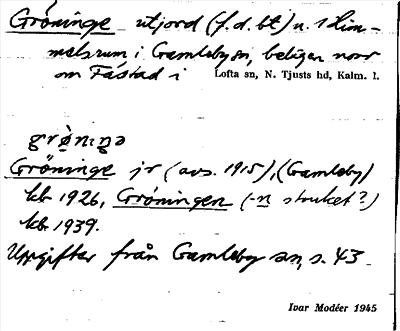 Gröninge utjord (f.d. bt) u. Him-
melsrum i Gamleby sn, belägen norr
om Fästad i Lofta sn, N. Tjusts hd, Kalm. l.
grö̀niŋə
Gröninge jr (avs. 1915), (Gamleby)
kb 1926, Gröningen (-n struket?)
kb 1939.
Uppgifter från Gamleby sn, s. 43
Ivar Modéer 1945